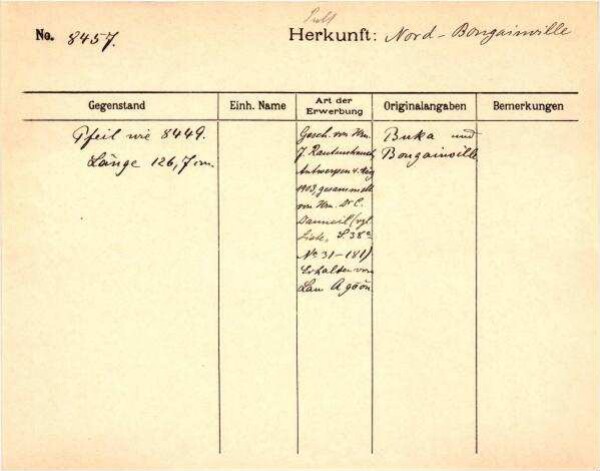 No. 8457. Herkunft: Nord-Bougainville
Gegenstand Einh. Name Art der Erwerbung Originalangaben Bemerkungen
Pfeil wie 8449.
Länge 126,7 cm.
Gesch. von Hrn.
J. Rautenstrauch,
Antwerpen 4. Aug.
1913, gesammelt
von Hrn. Dr. C.
(vgl.
Liste, S. 38
No 31-181)
Erhalten von
Buka und
Bougainville